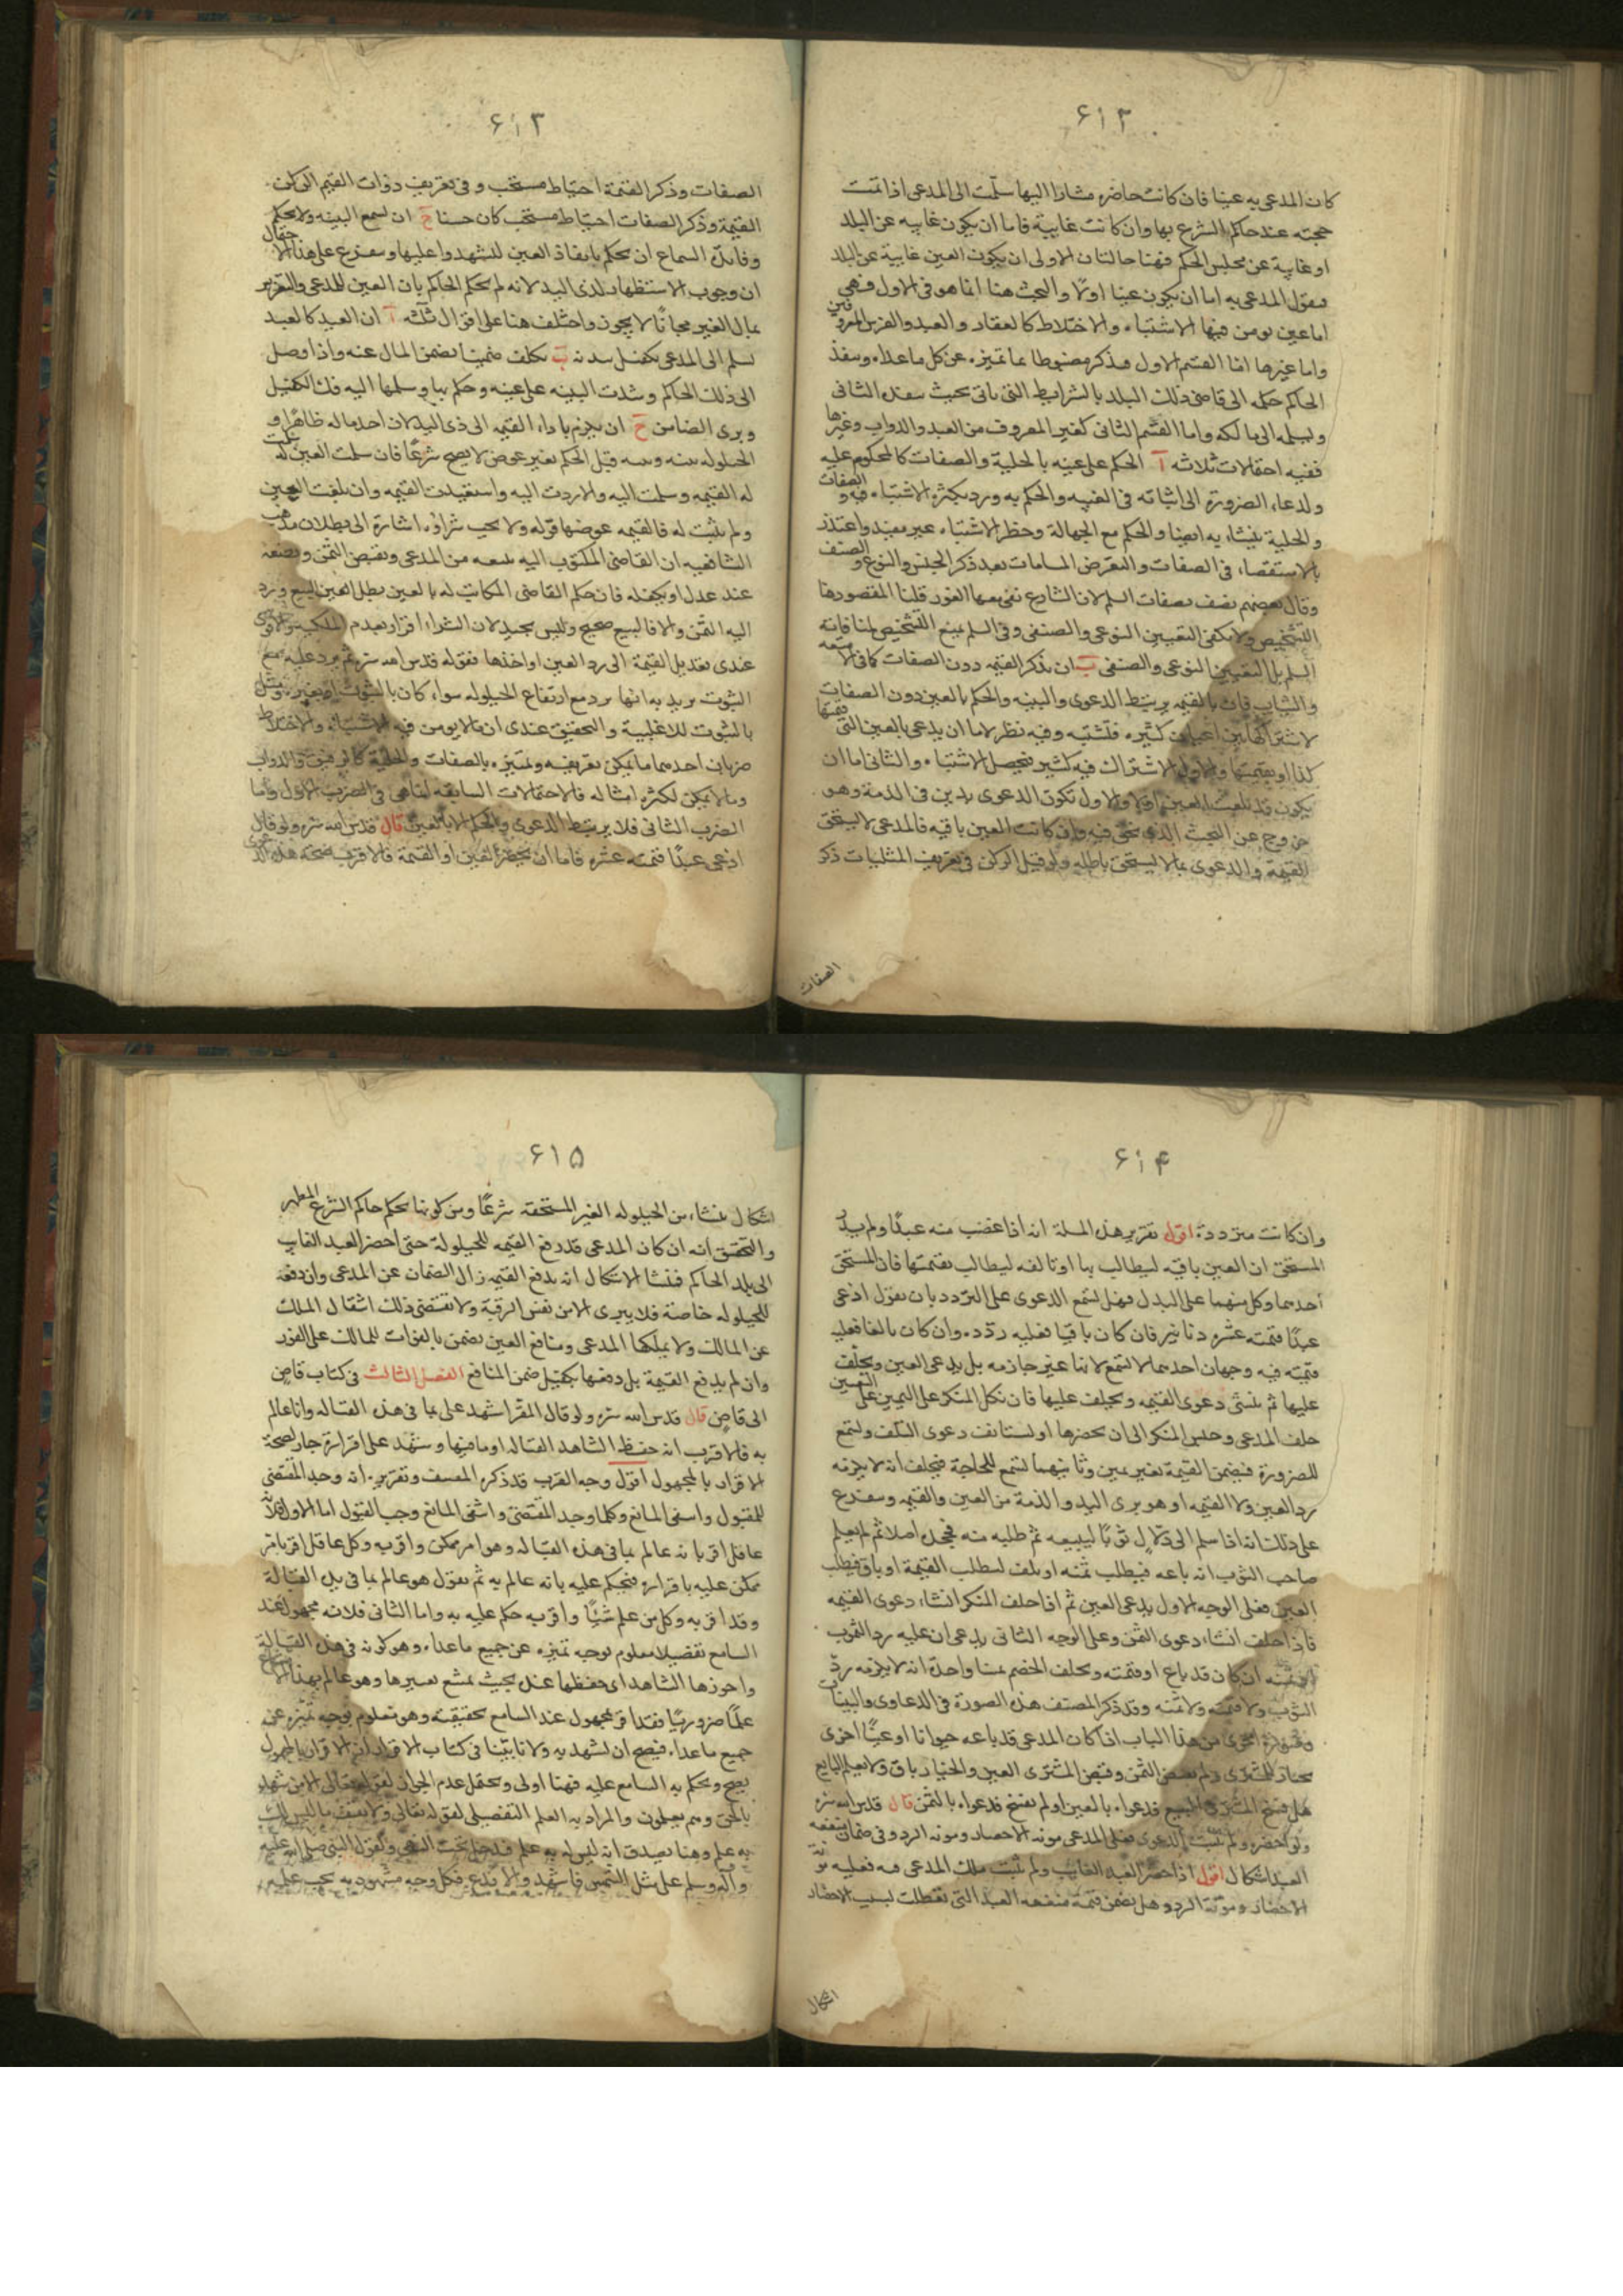 ٦١٢
كان المدعى به عينا فان كانت حاضره مشارا اليها سلمت الى المدعى اذا تمت
حجته عند حاكم الشرع بها وان كانت غايبة فاما ان يكون غايبه عن البلد
او غايبة عن مجلس الحكم فهنا حالتان الاولى ان يكون العين غايبة عن البلد
فنقول المدعى به اما ان يكون عينا اولا والبحث هنا انما هو فى الاول فهى
اما عين يومن فيها الاشتباه والاختلاط كالعقار والعبد والفرس المعروفين
واما غيرها اما القسم الاول فيذكر مضبوطا بما تميزه عن كل ماعداه وينفذ
الحاكم حكمه الى قاضى ذلك البلد بالشرايط التى ياتى بحيث ينفذه الثانى
ويسلمه الى مالكه واما القسم الثانى كغير المعروف من العبد والدواب وغيرها
ففيه احتمالات ثلاثه آ الحكم على عينه بالحلية والصفات كالمحكوم عليه
ولدعاء الضرورة الى اثباته فى الغيبه والحكم به ويرد بكثرة الاشتباه فيه والصفات
والحلية يتشابه ايضا والحكم مع الجهالة وحظر الاشتباه غير مفيد واعتذر
بالاستقصاء فى الصفات والتعرض بعد ذكر الجنس والنوع والصنف
وقال بعضهم يصف بصفات السلم لان الشارع نفى معها الغرر قلنا المقصود هنا
التشخيص ولا يكفى التعيين النوعى والصنفى وفى السلم يمنع التشخيص لمنافاته
السلم بل التعيين النوعى والصنفى ب ان يذكر القيمه دون الصفات كالامتعه
والثياب فان بالقيمه يرتبط الدعوى والبينه والحكم بالعين دون الصفات
لاشتراكها بين اعيان كثيره فتشتبه وفيه نظر لاما ان يدعى بالعين التى قيمتها
كذا او بقيمتها والاول الاشتراك فيه كثير فيحصل الاشتباه والثانى اما ان
يكون قد تلفت العين او لا والاول تكون الدعوى بدين فى الذمة وهو
خروج عن البحث الذى نحن فيه وان كانت العين باقيه فالمدعى لا يستحق
القيمة والدعوى بما لا يستحق باطله ولو قيل الركن فى تعريف المثليات ذكر
الصفات
٦١٣
الصفات وذكر القيمة احتياط مستحب وفى تعريف ذوات القيم الركن
القيمة وذكر الصفات احتياط مستحب كان حسنا ج ان تسمع البينه ولا يحكم
وفايدة السماع ان يحكم بانفاذ العين للشهدوا عليها ويتفرع على هذا الاحتمال
ان وجوب الاستظهار لذى اليد لانه لم يحكم الحاكم بان العين للمدعى والتغرير
بمال الغير مجانا لا يجوز واختلف هنا على اقوال ثلثه آ ان العبد كالعبد
يسلم الى المدعى بكفيل ببدنه ب يكلف ضمينا يضمن المال عنه واذا وصل
الى ذلك الحاكم وشهدت البينه على عينه وحكم بها وسلمها اليه فك الكفيل
وبرى الضامن ج ان يلزم باداء القيمه الى ذى اليد لان اخذ ماله ظاهرا و
الحيلوله بينه وبينه قبل الحكم بغير عوض لا يصح شرعا فان سلمت العين
له القيمه وسلمت اليه والا ردت اليه واستعيدت القيمه وان تلفت العين
ولم يثبت له فالقيمه عوضها قوله ولا يجب شراؤه اشارة الى بطلان مذهب
الشافعيه ان القاضى المكتوب اليه يبيعه من المدعى ويقبض الثمن ويضعه
عند عدل او بكفله فان حكم القاضى المكاتب له بالعين بطل البيع ويرد
اليه الثمن والا فالبيع صحيح وليس بجيد لان الشراء اقرار بعدم الملكية
عندى تعديل القيمة الى رد العين او اخذها فقوله قدس الله سره ثم يرد عليه مع
الثبوت يريد به انها يرد مع ارتفاع الحيلوله سواء كان بالثبوت او بغيره
بالثبوت للاغلبية والتحقيق عندى ان ما لا يومن فيه الاشتباه والاختلاط
ضربان احدهما ما يمكن تعريفه وتميزه بالصفات والحلية كالرقيق والدواب
وما لا يمكن لكثره امثاله فالاحتمالات السابقه انما هى فى الضرب الاول واما
الضرب الثانى فلا يرتبط الدعوى والحكم الا بالعين قال قدس الله سره ولو قال
ادعى عبدا قيمته عشره فاما ان يحضر العين او القيمة فالاقرب صحة هذه الدعوى
٦١٤
وان كانت مترددة اقول تقرير هذه المسئلة انه اذا غصب منه عبدا ولم يدر
المستحق ان العين باقيه ليطالب بها او تالفه ليطالب بقيمتها فان المستحق
احدهما وكل منهما على البدل فهل تسمع الدعوى على التردد بان يقول ادعى
عبدا قيمته عشره دنانير فان كان باقيا فعليه رده وان كان تالفا فعليه
قيمته فيه وجهان احدهما لا تسمع لانها غير جازمه بل يدعى العين ويحلف
عليها ثم ينشئ دعوى القيمه ويحلف عليها فان نكل المنكر على اليمين على العين
حلف المدعى وحبس المنكر الى ان يحضرها او يستانف دعوى التلف وتسمع
للضرورة فيضمن القيمة بغير يمين وثانيهما تسمع للحاجة فيحلف انه لا يلزمه
رد العين ولا القيمه او هو برى اليد والذمة من العين والقيمه ويتفرع
على ذلك انه اذا سلم الى دلال ثوبا ليبيعه ثم طلبه منه فجحد اصلا ثم لم يعلم
صاحب الثوب انه باعه فيطلب ثمنه او تلف ليطلب القيمة او باق فيطلب
العين فعلى الوجه الاول يدعى العين ثم اذا حلف المنكر انشاء دعوى القيمه
فاذا حلف انشاء دعوى الثمن وعلى الوجه الثانى يدعى ان عليه رد الثوب
او ثمنه ان كان قد باع او قيمته ويحلف الخصم يمينا واحدة انه لا يلزمه رد
الثوب ولا قيمته ولا ثمنه وقد ذكر المصنف هذه الصورة فى الدعاوى والبينات
وصورة اخرى من هذا الباب اذا كان المدعى قد باعه حيوانا او عينا اخرى
بخيار للمشترى ولم يقبض الثمن وقبض المشترى العين والخيار باق ولا يعلم البايع
هل فسخ المشترى البيع فدعواه بالعين او لم يفسخ فدعواه بالثمن قال قدس الله سره
ولو احضره ولم تثبت الدعوى فعلى المدعى مونة الاحضار ومونة الرد وفى ضمان منفعه
العبد اشكال اقول اذا احضر العبد الغايب ولم يثبت ملك المدعى فيه فعليه مونة
الاحضار ومونة الرد وهل يضمن قيمة منفعه العبد التى تعطلت بسبب الاحضار
اشكال
٦١٥
اشكال ينشاء من الحيلوله الغير المستحقه شرعا ومن كونها بحكم حاكم الشرع المطهر
والتحقيق انه ان كان المدعى قد رفع القيمه للحيلولة حتى احضر العبد الغايب
الى بلد الحاكم فينشا الاشكال انه بدفع القيمه زال الضمان عن المدعى وان دفعه
للحيلوله خاصة فلا يبرى الا من نفس الرقبة ولا يقتضى ذلك انتقال الملك
عن المالك ولا يملكها المدعى ومنافع العين يضمن بالفوات للمالك على الفور
وان لم يدفع القيمة بل دفعها بكفيل ضمن المنافع الفصل الثالث فى كتاب قاض
الى قاض قال قدس الله سره ولو قال المقر اشهد على بما فى هذه القباله وانا عالم
به فالاقرب انه حفظ الشاهد القباله او ما فيها وشهد على اقراره جاز لصحة
الاقرار بالمجهول اقول وجه القرب قد ذكره المصنف وتقريره انه وجد المقتضى
للقبول وانتفى المانع وكلما وجد المقتضى وانتفى المانع وجب القبول اما الاول فلانه
عاقل اقر بانه عالم بما فى هذه القباله وهو امر ممكن واقر به وكل عاقل اقر بامر
ممكن عليه باقراره فيحكم عليه بانه عالم به ثم نقول هو عالم بما فى يد القبالة
وقد اقر به وكل من علم شيئا واقر به حكم عليه به واما الثانى فلانه مجهول عند
السامع تفضيلا معلوم بوجه تميزه عن جميع ماعداه وهو كونه فى هذه القبالة
واحرزها الشاهد اى حفظها عنده بحيث يمتنع تغييرها وهو عالم بهذا
علما ضروريا فقد اقر بمجهول عند السامع بحقيقته وهو معلوم بوجه تميزه عن
جميع ماعداه فيصح ان تشهد به ولانا بينا فى كتاب الاقرار ان الاقرار بالمجهول
يصح ويحكم به السامع عليه فهنا اولى ويحتمل عدم الجواز لقوله تعالى الا من شهد
بالحق وهم يعلمون والمراد به العلم التفصيلى لقوله تعالى ولا تقف ما ليس لك
به علم وهنا يصدق انه ليس له به علم فدخل تحت النهى ولقول النبى صلى الله عليه
وآله وسلم على مثل الشمس فاشهد والا فدع فكل وجه مشهود به يجب علمه